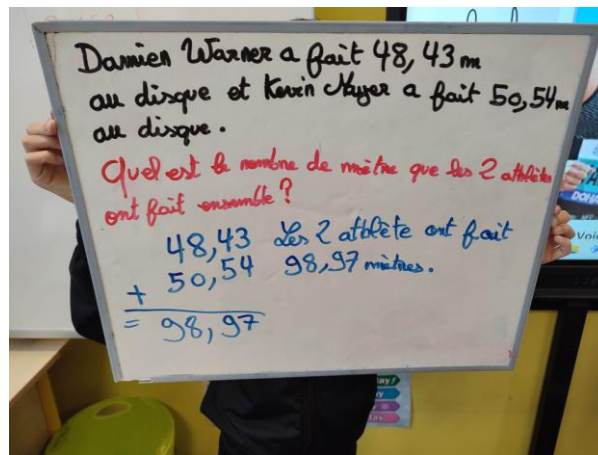 Damien Warner a fait 48,43 m
au disque et Kevin Mayer a fait 50,54 m
au disque.
Quel est le nombre de mètre que les 2 athlètes
ont fait ensemble ?
48,43 Les 2 athlète ont fait
+ 50,54 98,97 mètres.
= 98,97